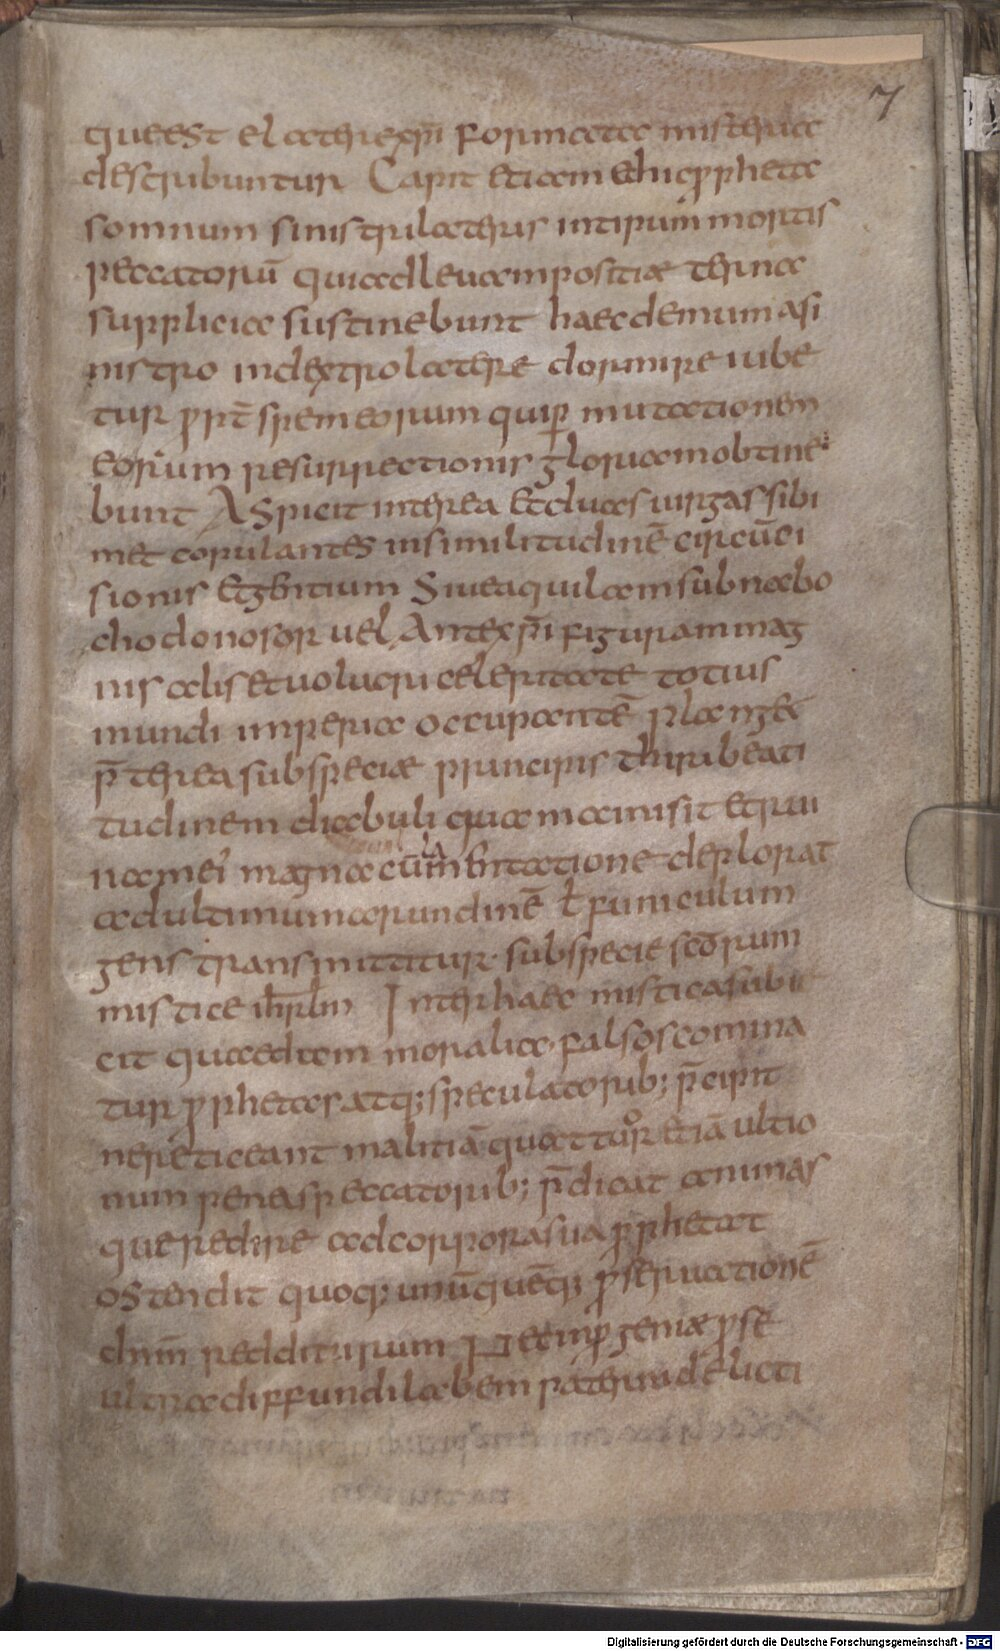 7
queest elatherexp̄i formata mistheria
describuntur Capit etiam ethicp̱pheta
somnum sinistrilatheris intipum mortis
peccatorū quiadleuampositiæ therna
supplicia sustinebunt haec demum asi
nistro indextrolathere dormire iube
tur ꝓpt̄ spem eorum quiꝑ mutationem
eorum resurrectionis gloriam obtine
bunt Aspicit interea etduas uirgas sibi
met copulantes insimilitudinē circūci
sionis etgentium Siueaquilam subnabo
chodonosor uel Antexp̄i figuram mag
nis alis etuolucri celeritate totius
mundi imperia occupantē plangē
p̄therea subspeciæ principis thiri beati
tudinem diabuli quamamisit etrui
namei magna cūlamentatione deplorat
adultimum arundinē ł funiculum
gens transmittitur subspecie scōrum
mistice ihrlm Interhaec misticasubi
cit quaedam moralia falsos comina
tur ꝓphetas atq; speculatorib; p̄cipit
nereticeant malitiā quattuor etiā ultio
num penas peccatorib; p̄dicat animas
que redire adcorporasua ꝓphetat
ostendit quoq; unūquēq; ꝓseruatione
dnm̄ redditurum Necinꝓgeniæ ꝓse
ultra diffundi labem paterni delicti
Digitalisierung gefördert durch die Deutsche Forschungsgemeinschaft - DFG